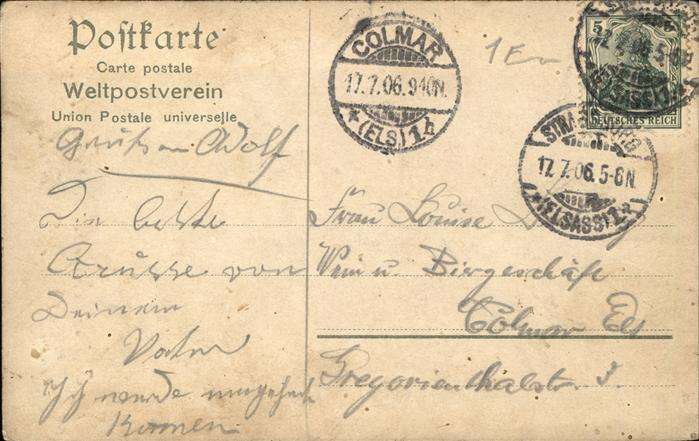 Postkarte
Carte postale
Weltpostverein
Union Postale universelle
COLMAR
17.7.06.9-10N.
*(ELS)1h
5
DEUTSCHES REICH
STRASSBURG
17.7.06.5-6N
*(ELSASS)1*
Gruß an Adolf
Die beste
Grüsse von
Deinem
Vater
Ich werde
komen
Frau Louise
Wein u Biergeschäft
Colmar Els
Gregorienthalstr 3.